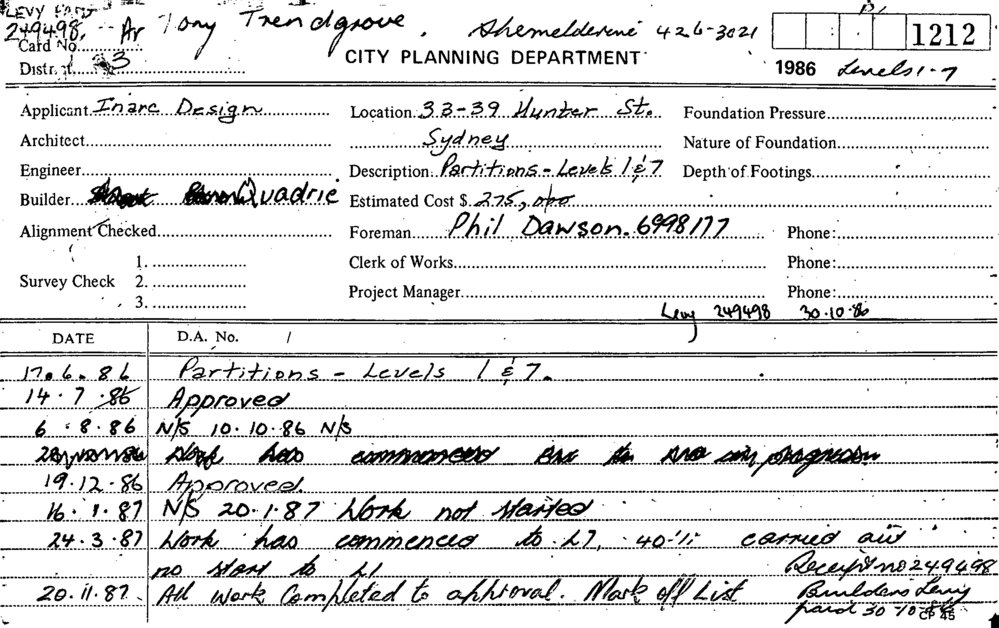 LEVY PAID
249498. Ar Tony Trendgrove. 426-3021
Card No. 1212
CITY PLANNING DEPARTMENT
District 3 1986 Levels 1-7
Applicant Inarc Design Location 33-39 Hunter St. Foundation Pressure
Architect Sydney Nature of Foundation
Engineer Description Partitions - Levels 1 & 7 Depth of Footings
Builder Quadric Estimated Cost $ 275,000
Alignment Checked Foreman Phil Dawson. 6998177 Phone:
1. Clerk of Works Phone:
Survey Check 2.
3. Project Manager Phone:
Levy 249498 30.10.86
DATE D.A. No. /
17.6.86 Partitions - Levels 1 & 7.
14.7.86 Approved
6.8.86 N/S 10.10.86 N/S
Work has commenced
19.12.86 Approved.
16.1.87 N/S 20.1.87 Work not started
24.3.87 Work has commenced to L7, 40% carried out
no start to L1 Receipt no 249498
20.11.87. All work Completed to approval. Mark off List Builders Levy
paid 30-10-86
CP 45